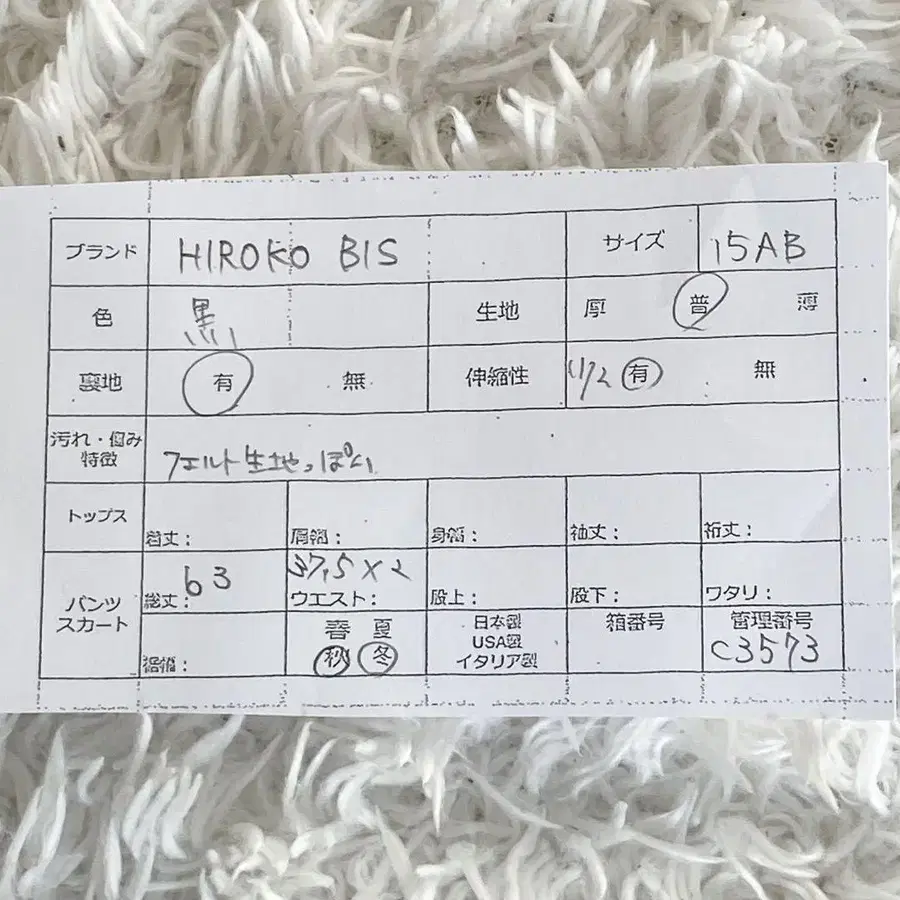 ブランド HIROKO BIS サイズ 15AB
色 黒 生地 厚 普 薄
裏地 有 無 伸縮性 有 無
汚れ・傷み
特徴 フェルト生地っぽい
トップス 着丈: 肩幅: 身幅: 袖丈: 裄丈:
パンツ
スカート 総丈: 63 ウエスト: 37,5×2 股上: 股下: ワタリ:
裾幅: 春 夏
秋 冬
日本製
USA製
イタリア製
箱番号
管理番号
C3573